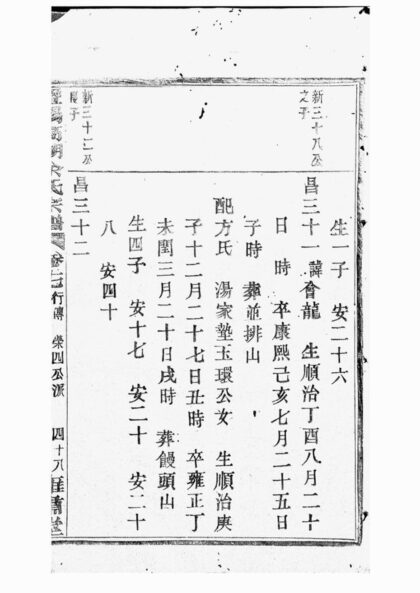 新三十八公
之子
生一子 安二十六
昌三十一 諱會龍 生順治丁酉八月二十
日 時 卒康熙己亥七月二十五日
子時 葬並排山
配方氏 湯家墊玉環公女 生順治庚
子十二月二十七日丑時 卒雍正丁
未閏三月二十日戌時 葬饅頭山
生四子 安十七 安二十 安二十
八 安四十
新三十二公
長子
昌三十二
氏宗譜 卷 行傳 榮四公派 四十八